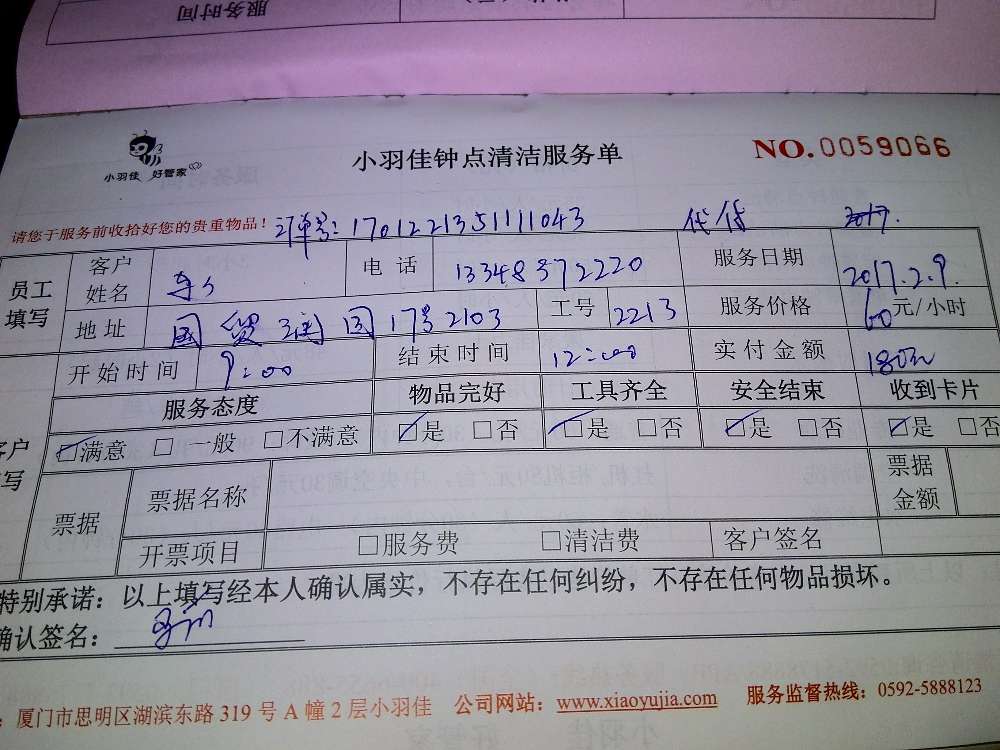 服务时间
小羽佳 好管家
小羽佳钟点清洁服务单
NO.0059066
请您于服务前收拾好您的贵重物品!
订单号:17012213511111043
2017.
员工填写
客户姓名
电话 13348372220
服务日期 2017.2.9.
地址 国贸 17号2103
工号 2213
服务价格 60元/小时
开始时间 9:00
结束时间 12:00
实付金额 180元
服务态度 物品完好 工具齐全 安全结束 收到卡片
☑满意 □一般 □不满意 ☑是 □否 ☑是 □否 ☑是 □否 ☑是 □否
票据 票据名称 票据金额
开票项目 □服务费 □清洁费 客户签名
特别承诺:以上填写经本人确认属实,不存在任何纠纷,不存在任何物品损坏。
确认签名:
:厦门市思明区湖滨东路 319 号 A 幢 2 层小羽佳 公司网站:www.xiaoyujia.com 服务监督热线:0592-5888123